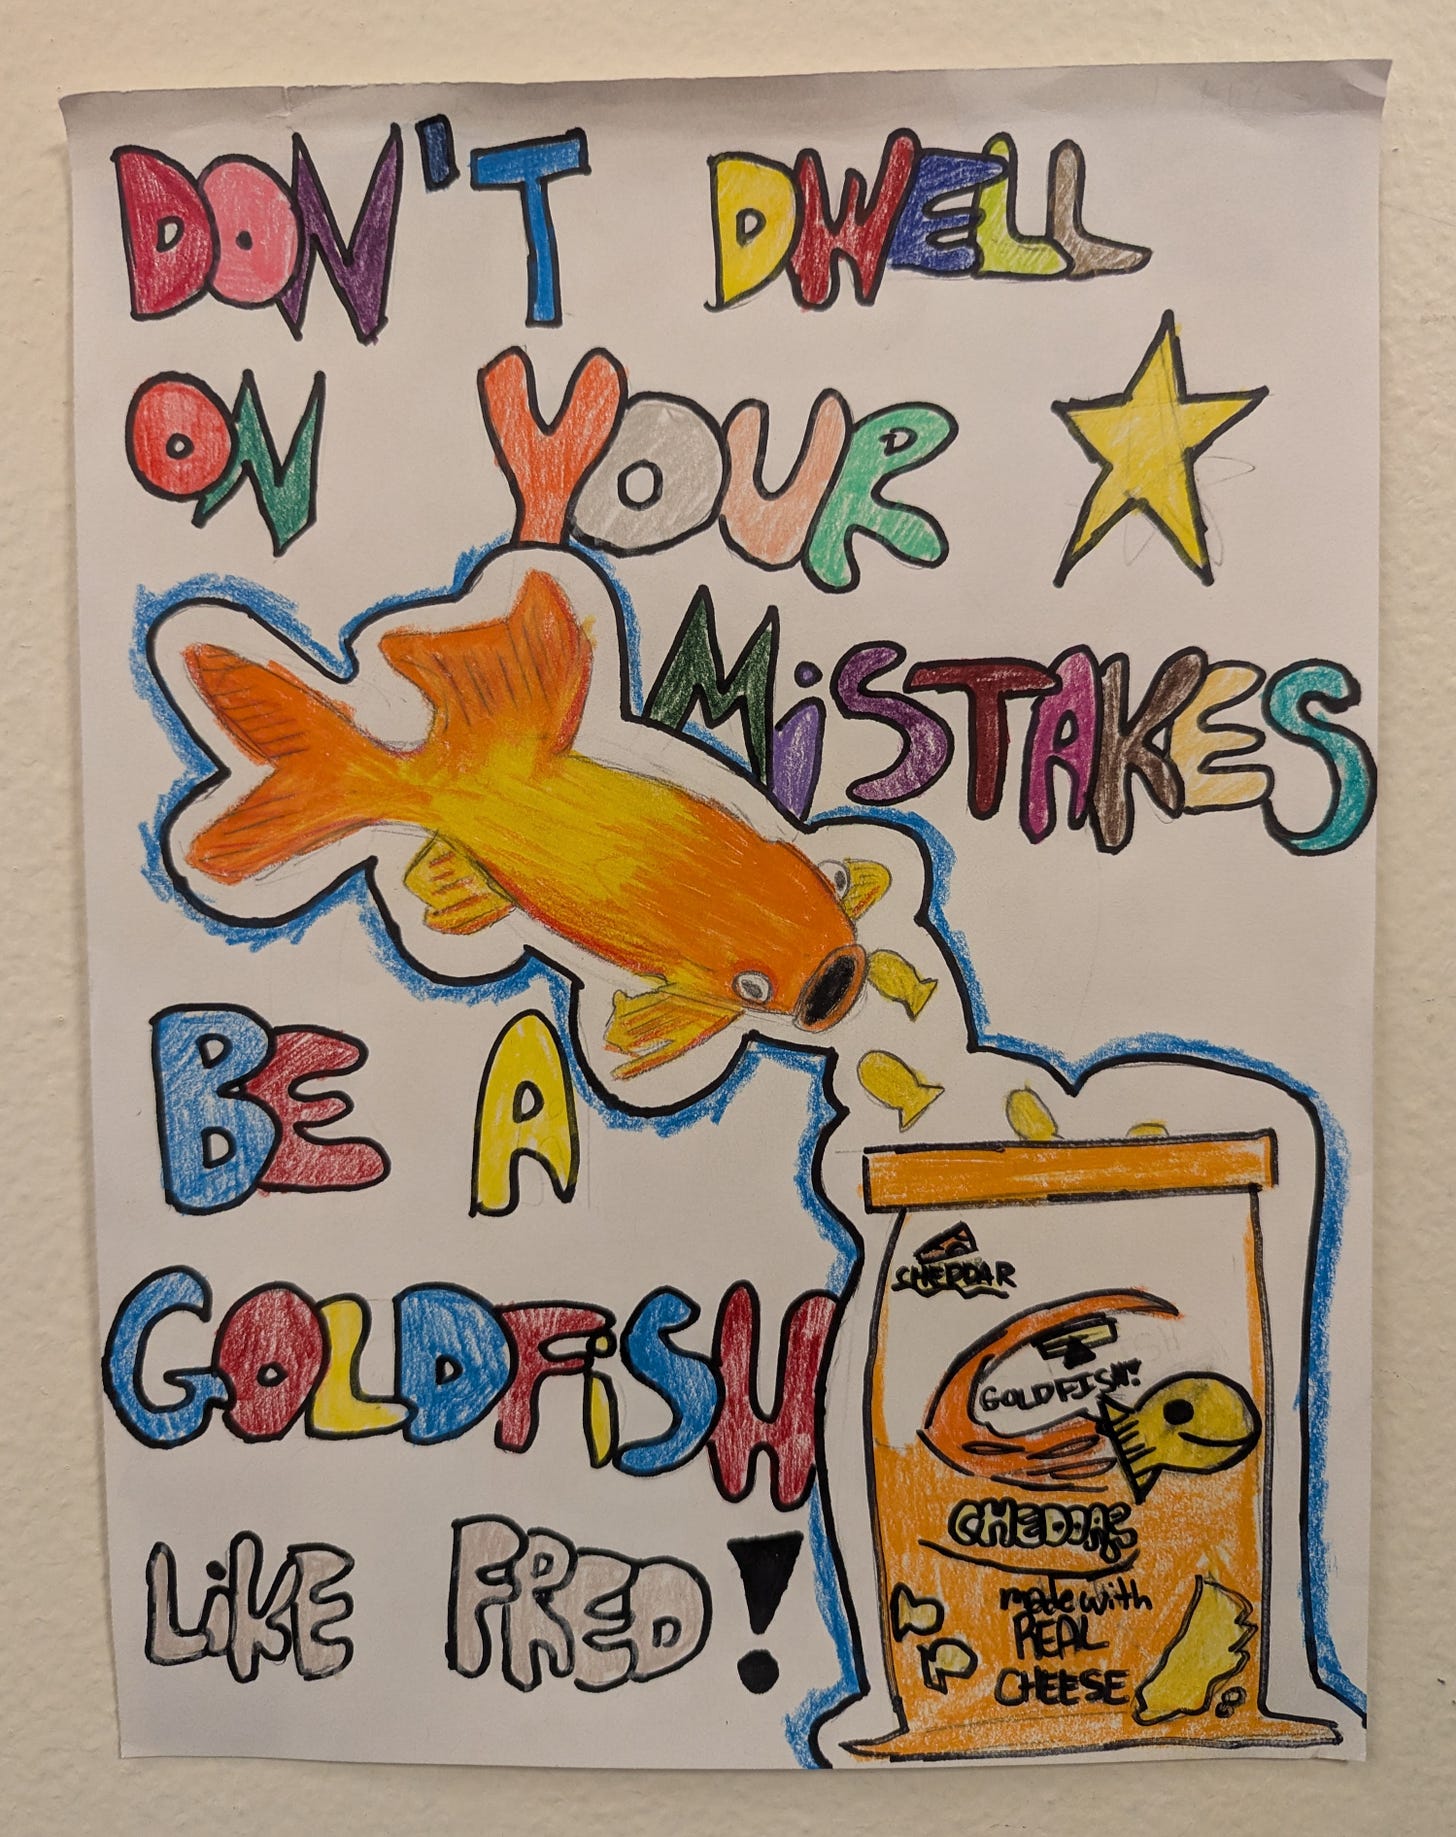 DON'T DWELL
ON YOUR
MiSTAKES
BE A
GOLDFiSH
LiKE FRED!
CHEDDAR
GOLDFISH!
CHEDDAR
made with
REAL
CHEESE